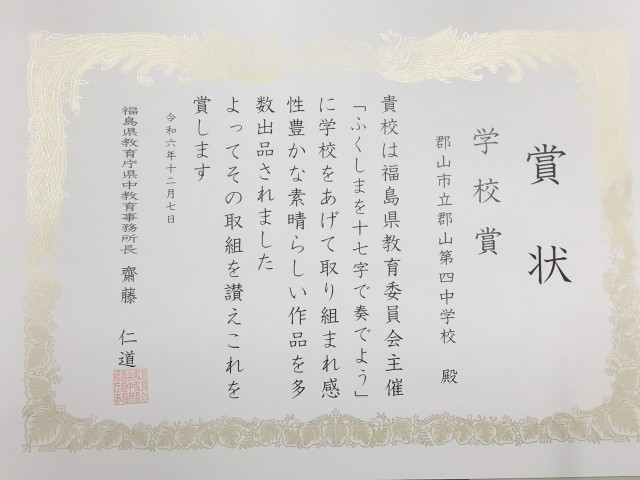 賞状
学校賞
郡山市立郡山第四中学校 殿
貴校は福島県教育委員会主催
「ふくしまを十七字で奏でよう」
に学校をあげて取り組まれ感
性豊かな素晴らしい作品を多
数出品されました
よってその取組を讃えこれを
賞します
令和六年十二月七日
福島県教育庁県中教育事務所長 齋藤 仁道